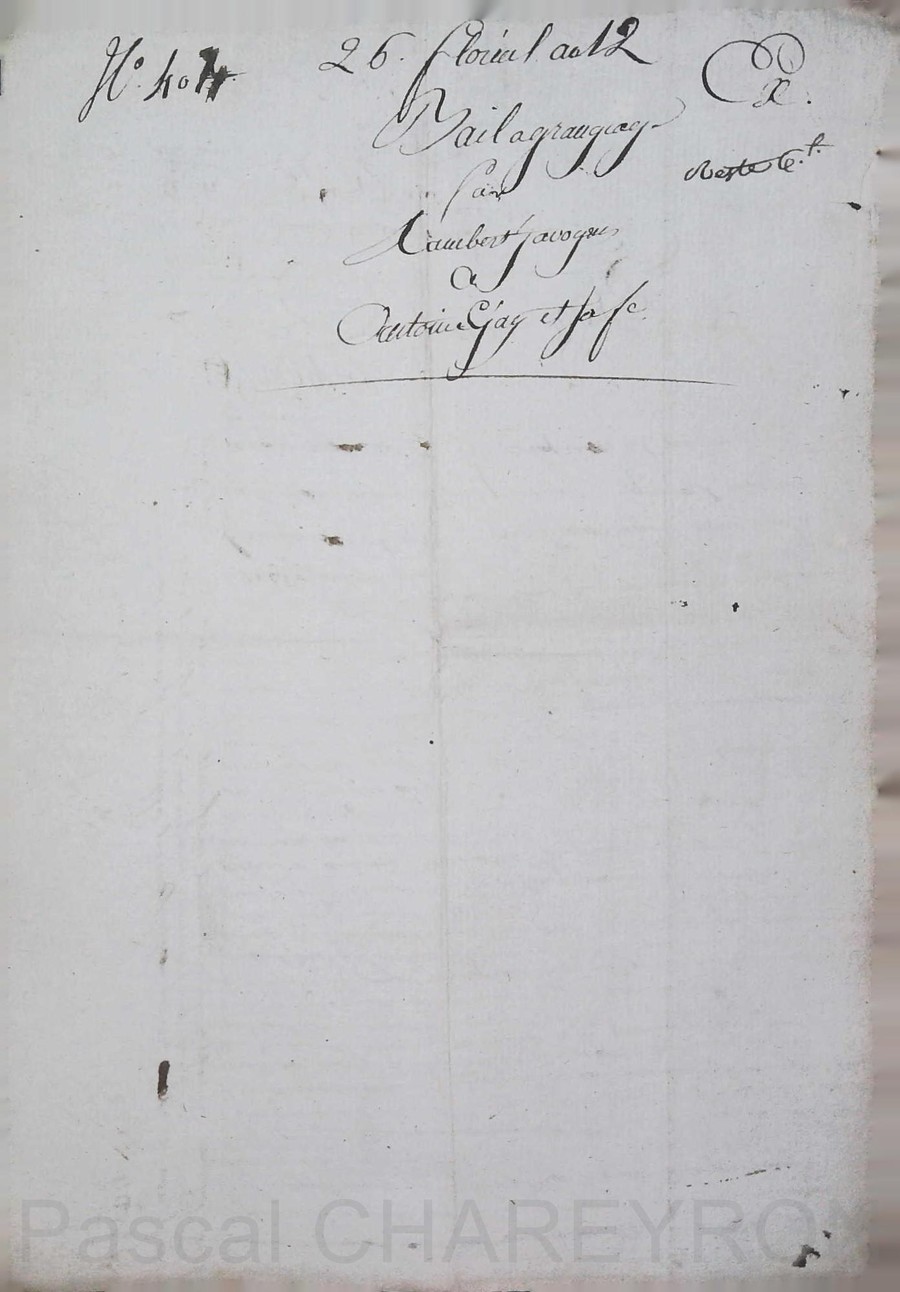 N° 404 26 floréal an 12 Ex.
Bail a grangeage
Reste 6.f.
par
Lambert Javogues
a
Antoine Gay et sa fe.
Pascal CHAREYRON